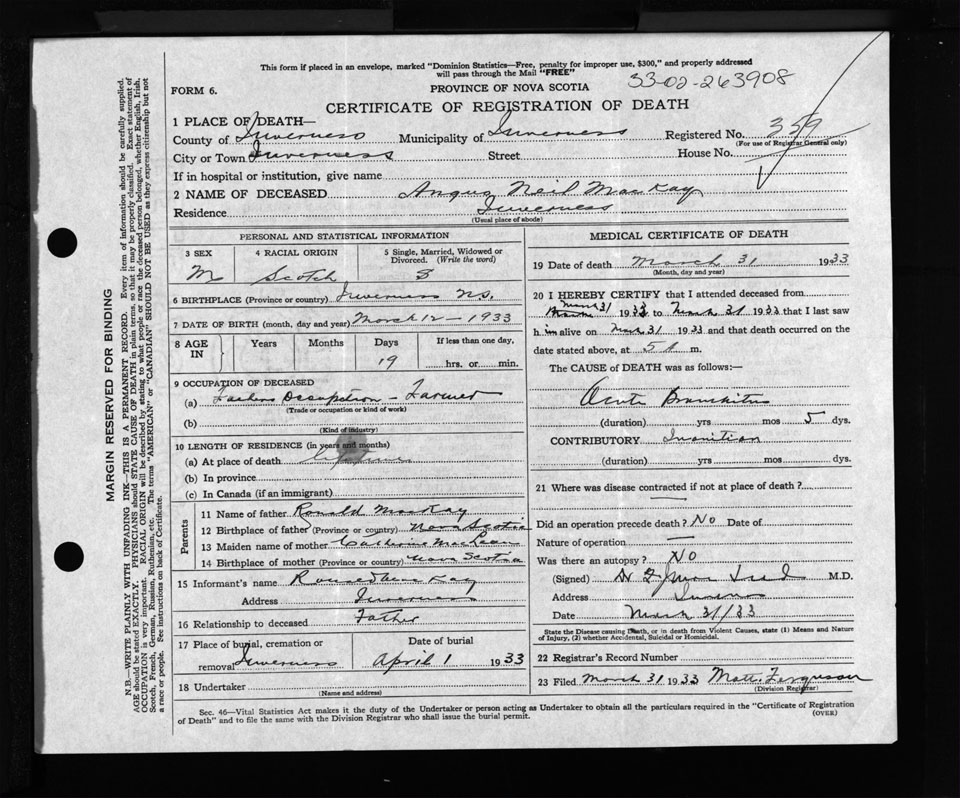 This form if placed in an envelope, marked "Dominion Statistics—Free, penalty for improper use, $300," and properly addressed
will pass through the Mail "FREE"
33-02-263908
FORM 6.
PROVINCE OF NOVA SCOTIA
CERTIFICATE OF REGISTRATION OF DEATH
1 PLACE OF DEATH—
County of Inverness Municipality of Inverness Registered No. 359
(For use of Registrar General only)
City or Town Inverness Street House No.
If in hospital or institution, give name
2 NAME OF DECEASED Angus Neil MacKay
Residence Inverness
(Usual place of abode)
PERSONAL AND STATISTICAL INFORMATION
3 SEX
4 RACIAL ORIGIN
5 Single, Married, Widowed or Divorced. (Write the word)
M Scotch S
6 BIRTHPLACE (Province or country) Inverness N.S.
7 DATE OF BIRTH (month, day and year) March 12 - 1933
8 AGE IN Years Months Days If less than one day,
19 hrs. or min.
9 OCCUPATION OF DECEASED
(a) Fathers Occupation - Farmer
(Trade or occupation or kind of work)
(b)
(Kind of industry)
10 LENGTH OF RESIDENCE (in years and months)
(a) At place of death lifetime
(b) In province
(c) In Canada (if an immigrant)
Parents
11 Name of father Ronald MacKay
12 Birthplace of father (Province or country) Nova Scotia
13 Maiden name of mother Catherine MacLean
14 Birthplace of mother (Province or country) Nova Scotia
15 Informant's name Ronald MacKay
Address Inverness
16 Relationship to deceased Father
17 Place of burial, cremation or removal Inverness
Date of burial
April 1 1933
18 Undertaker
(Name and address)
MEDICAL CERTIFICATE OF DEATH
19 Date of death March 31 1933
(Month, day and year)
20 I HEREBY CERTIFY that I attended deceased from
March 31 1933 to March 31 1933 that I last saw
h im alive on March 31 1933 and that death occurred on
date stated above, at 5 A m.
The CAUSE of DEATH was as follows:—
Acute Bronchitis
(duration) yrs mos 5 dys.
CONTRIBUTORY Inanition
(duration) yrs mos dys.
21 Where was disease contracted if not at place of death?
Did an operation precede death? No Date of
Nature of operation —
Was there an autopsy? No
(Signed) M.D.
Address
Date March 31/33
State the Disease causing Death, or in death from Violent Causes, state (1) Means and Nature
of Injury, (2) whether Accidental, Suicidal or Homicidal.
22 Registrar's Record Number
23 Filed March 31 1933 Matt. Ferguson
(Division Registrar)
Sec. 46—Vital Statistics Act makes it the duty of the Undertaker or person acting as Undertaker to obtain all the particulars required in the "Certificate of Registration
of Death" and to file the same with the Division Registrar who shall issue the burial permit.
(OVER)
MARGIN RESERVED FOR BINDING
N.B.—WRITE PLAINLY WITH UNFADING INK—THIS IS A PERMANENT RECORD. Every item of information should be carefully supplied.
AGE should be stated EXACTLY. PHYSICIANS should STATE CAUSE OF DEATH in plain terms, so that it may be properly classified. Exact statement of
OCCUPATION is very important. RACIAL ORIGIN will be described by stating to what people or race the deceased person belonged, whether English, Irish,
Scotch, French, German, Russian, Ruthenian, etc. The terms "AMERICAN" or "CANADIAN" SHOULD NOT BE USED as they express citizenship but not
a race or people. See instructions on back of Certificate.